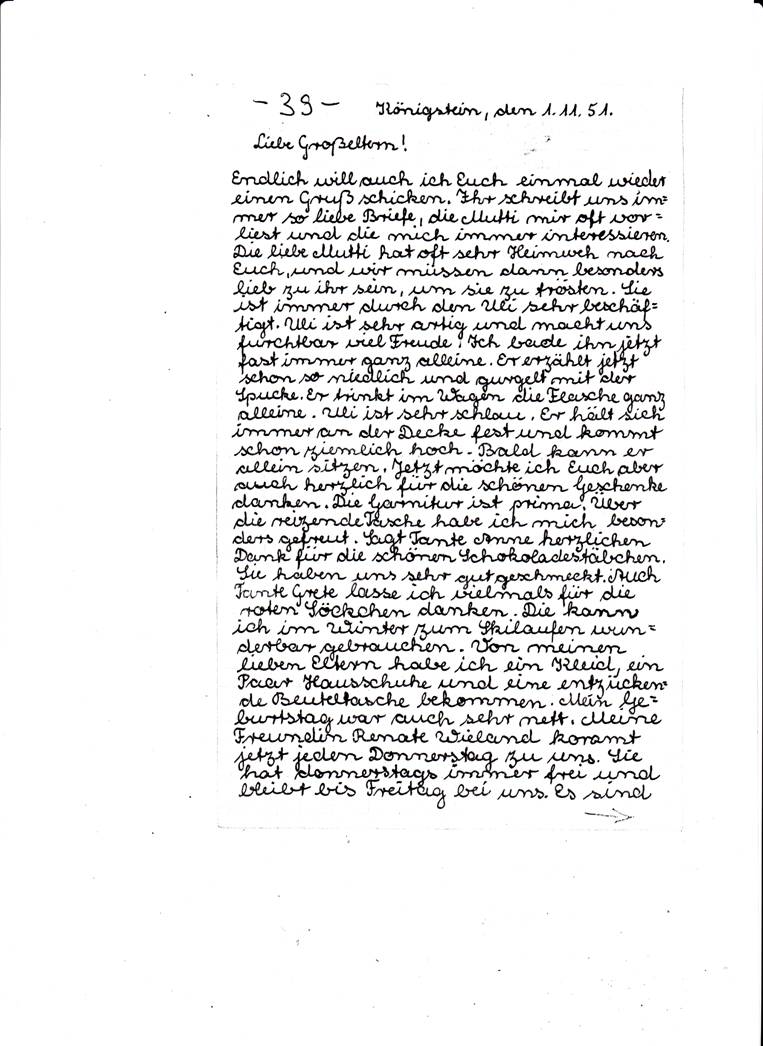 - 39 - Königstein, den 1.11.51.
Liebe Großeltern!
Endlich will auch ich Euch einmal wieder
einen Gruß schicken. Ihr schreibt uns im=
mer so liebe Briefe, die Mutti mir oft vor=
liest und die mich immer interessieren.
Die liebe Mutti hat oft sehr Heimweh nach
Euch, und wir müssen dann besonders
lieb zu ihr sein, um sie zu trösten. Sie
ist immer durch den Uli sehr beschäf=
tigt. Uli ist sehr artig und macht uns
furchtbar viel Freude! Ich bade ihn jetzt
fast immer ganz alleine. Er erzählt jetzt
schon so niedlich und gurgelt mit der
Spucke. Er trinkt im Wagen die Flasche ganz
alleine. Uli ist sehr schlau. Er hält sich
immer an der Decke fest und kommt
schon ziemlich hoch. Bald kann er
allein sitzen. Jetzt möchte ich Euch aber
auch herzlich für die schönen Geschenke
danken. Die Garnitur ist prima! Über
die reizende Tasche habe ich mich beson=
ders gefreut. Sagt Tante Anne herzlichen
Dank für die schönen Schokoladestäbchen.
Sie haben uns sehr gut geschmeckt. Auch
Tante Grete lasse ich vielmals für die
roten Söckchen danken. Die kann
ich im Winter zum Skilaufen wun=
derbar gebrauchen. Von meinen
lieben Eltern habe ich ein Kleid, ein
Paar Hausschuhe und eine entzücken=
de Beuteltasche bekommen. Mein Ge=
burtstag war auch sehr nett. Meine
Freundin Renate Wieland kommt
jetzt jeden Donnerstag zu uns. Sie
hat donnerstags immer frei und
bleibt bis Freitag bei uns. Es sind
→